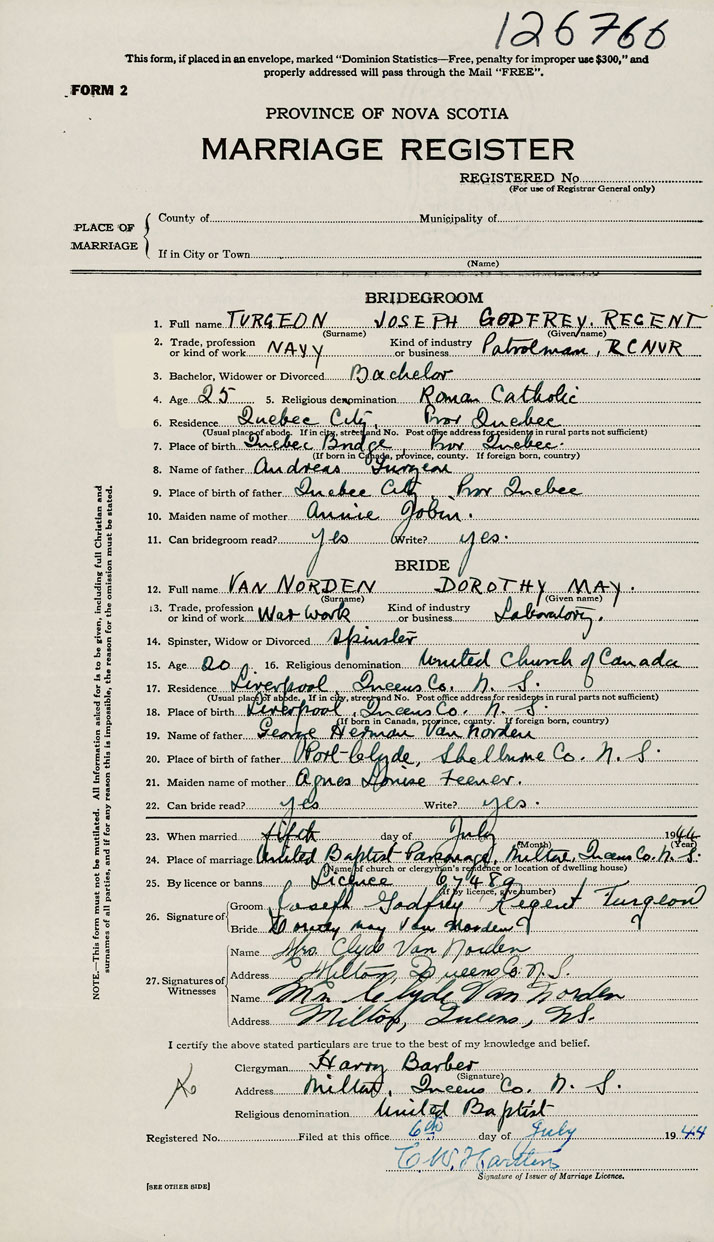 126766
This form, if placed in an envelope, marked "Dominion Statistics—Free, penalty for improper use $300," and
properly addressed will pass through the Mail "FREE".
FORM 2
PROVINCE OF NOVA SCOTIA
MARRIAGE REGISTER
REGISTERED No.
(For use of Registrar General only)
PLACE OF MARRIAGE
County of Municipality of
If in City or Town
(Name)
BRIDEGROOM
1. Full name TURGEON JOSEPH GODFREY. REGENT
(Surname) (Given name)
2. Trade, profession or kind of work NAVY Kind of industry or business Patrolman, RCNVR
3. Bachelor, Widower or Divorced Bachelor
4. Age 25 5. Religious denomination Roman Catholic
6. Residence Quebec City, Prov Quebec
(Usual place of abode. If in city, street and No. Post office address for residents in rural parts not sufficient)
7. Place of birth Quebec Bridge, Prov Quebec.
(If born in Canada, province, county. If foreign born, country)
8. Name of father Andreas Turgeon
9. Place of birth of father Quebec City, Prov Quebec
10. Maiden name of mother Annie Jobin.
11. Can bridegroom read? yes Write? yes.
BRIDE
12. Full name VAN NORDEN DOROTHY MAY.
(Surname) (Given name)
13. Trade, profession or kind of work War work Kind of industry or business Laboratory.
14. Spinster, Widow or Divorced Spinster
15. Age 20 16. Religious denomination United Church of Canada
17. Residence Liverpool, Queens Co. N. S.
(Usual place of abode. If in city, street and No. Post office address for residents in rural parts not sufficient)
18. Place of birth Liverpool, Queens Co. N. S.
(If born in Canada, province, county. If foreign born, country)
19. Name of father George Herman Van Norden
20. Place of birth of father Port-Clyde, Shelburne Co. N. S.
21. Maiden name of mother Agnes Louise Feener.
22. Can bride read? yes Write? yes.
23. When married fifth day of July 1944
(Month) (Year)
24. Place of marriage United Baptist Parsonage, Milton, Queens Co. N. S.
(Name of church or clergyman's residence or location of dwelling house)
25. By licence or banns Licence 67489
(If by licence, give number)
26. Signature of
Groom Joseph Godfrey Regent Turgeon
Bride Dorothy May Van Norden
27. Signatures of Witnesses
Name Mrs. Clyde Van Norden
Address Milton, Queens Co. N. S.
Name Mr. Clyde Van Norden
Address Milton, Queens, N.S.
I certify the above stated particulars are true to the best of my knowledge and belief.
Clergyman Harry Barber
(Signature)
Address Milton, Queens Co. N. S.
Religious denomination United Baptist
Registered No. Filed at this office 6th day of July 1944
Signature of Issuer of Marriage Licence.
[SEE OTHER SIDE]
NOTE.—This form must not be mutilated. All Information asked for is to be given, including full Christian and
surnames of all parties, and if for any reason this is impossible, the reason for the omission must be stated.